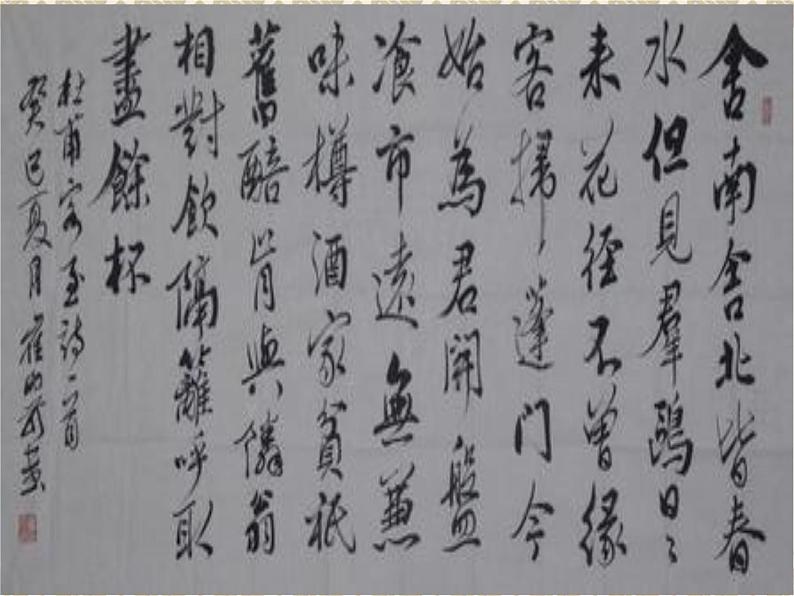 舍南舍北皆春
水但見羣鷗日〻
来花徑不曾緣
客掃蓬門今
始為君開盤
飡市遠無兼
味樽酒家貧祇
舊醅肯與隣翁
相對飲隔籬呼取
盡餘杯
杜甫客至詩一首
癸巳夏月崔